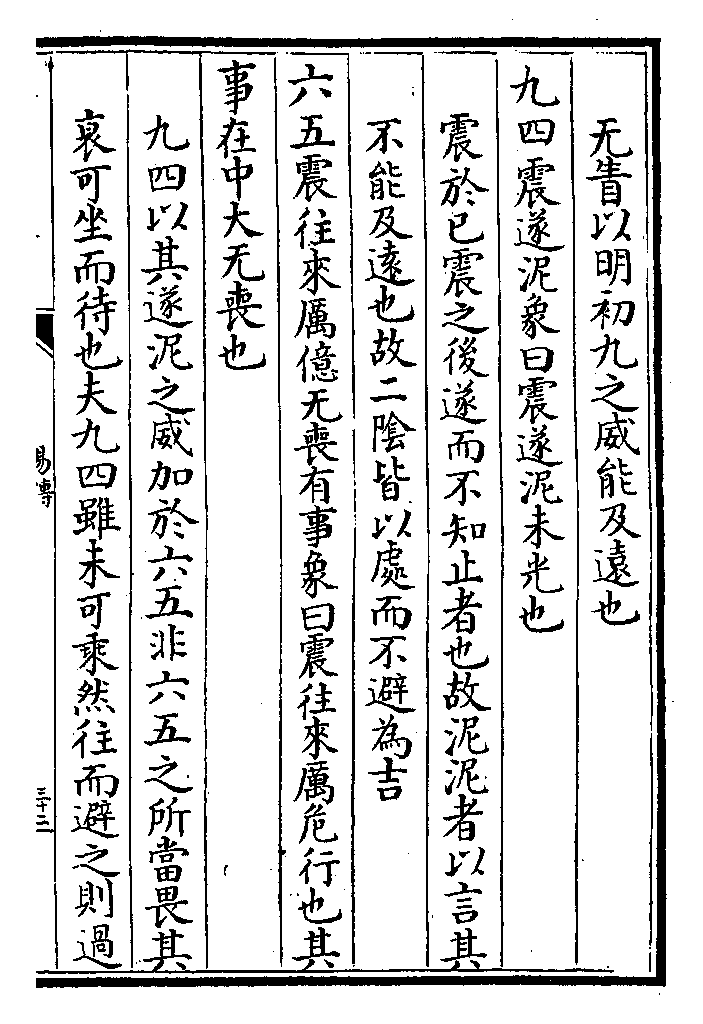 无眚以明初九之威能及遠也
九四震遂泥象曰震遂泥未光也
震於已震之後遂而不知止者也故泥泥者以言其
不能及遠也故二陰皆以處而不避為吉
六五震往來厲億无喪有事象曰震往來厲危行也其
事在中大无喪也
九四以其遂泥之威加於六五非六五之所當畏其
衰可坐而待也夫九四雖未可乘然往而避之則過
易傳
三十二